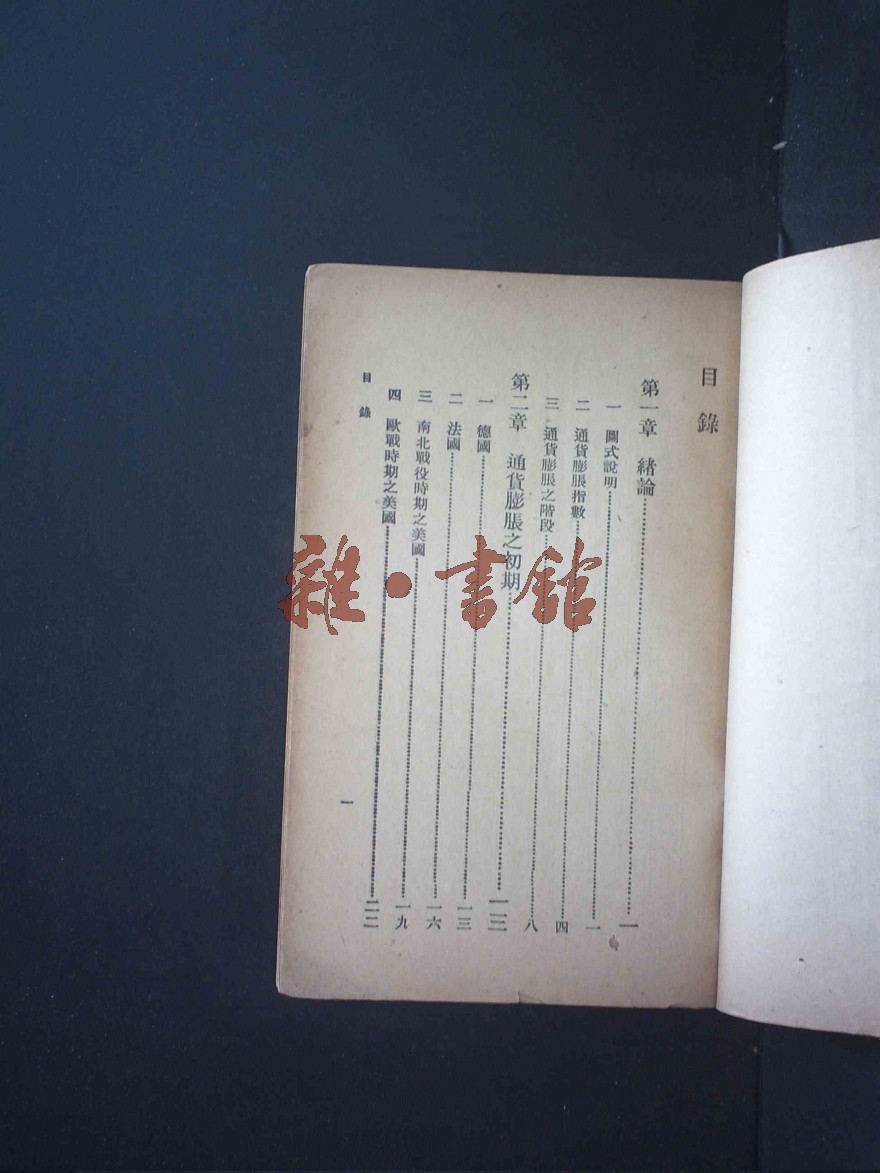 目錄
第一章 緒論……一
一 圖式說明……一
二 通貨膨脹指數……四
三 通貨膨脹之階段……八
第二章 通貨膨脹之初期……一三
一 德國……一三
二 法國……一六
三 南北戰役時期之美國……一九
四 歐戰時期之美國……二二
目錄
一
雜·書館